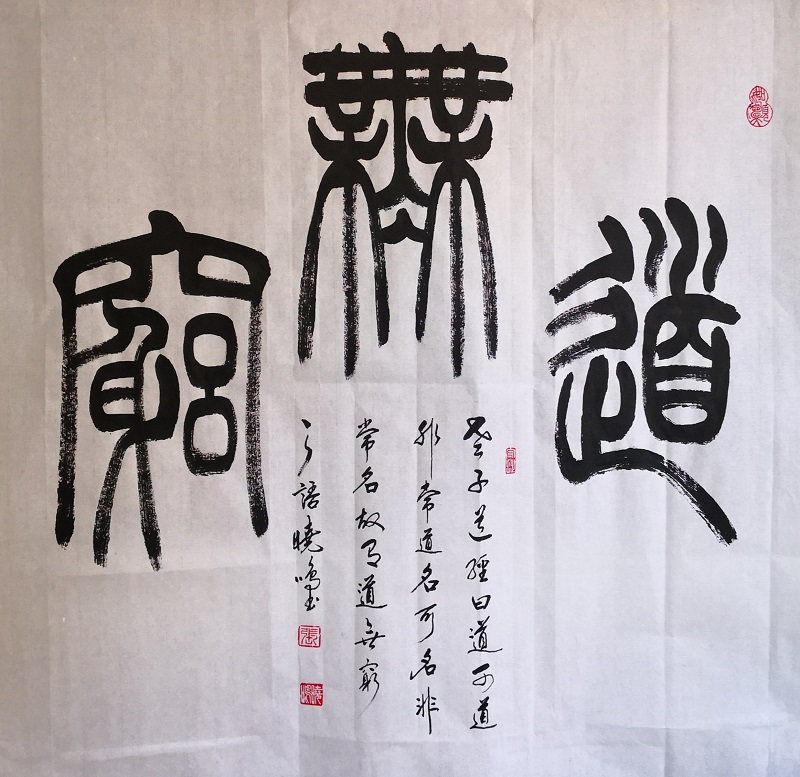 道無窮
老子道經曰道可道
非常道名可名非
常名故有道無窮
之語曉鳴書
張